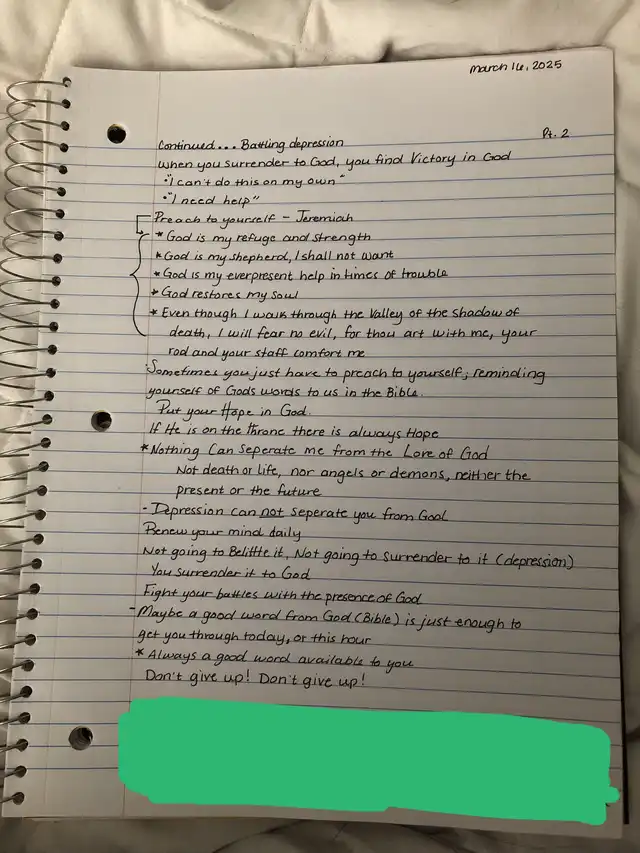 March 16, 2025
Pt. 2
Continued... Battling depression
when you surrender to God, you find Victory in God
•"I can't do this on my own"
•"I need help"
Preach to yourself - Jeremiah
* God is my refuge and strength
* God is my shepherd, I shall not want
* God is my everpresent help in times of trouble
* God restores my soul
* Even though I walk through the Valley of the shadow of
death, I will fear no evil, for thou art with me, your
rod and your staff comfort me
Sometimes you just have to preach to yourself; reminding
yourself of Gods words to us in the Bible.
Put your Hope in God.
If He is on the throne there is always Hope
* Nothing Can Seperate me from the Love of God
Not death or life, nor angels or demons, neither the
present or the future
- Depression can not seperate you from God
Renew your mind daily
Not going to Belittle it, Not going to surrender to it (depression)
You surrender it to God
Fight your battles with the presence of God
- Maybe a good word from God (Bible) is just enough to
get you through today, or this hour
* Always a good word available to you
Don't give up! Don't give up!